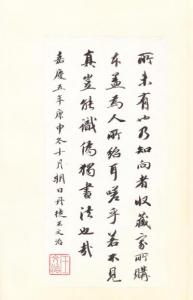 所未有也乃知向者收藏家所購
本盖為人所紿耳嗟乎若不見
真豈能識偽獨書法也哉
嘉慶五年庚申冬十月朔日丹徒王文治